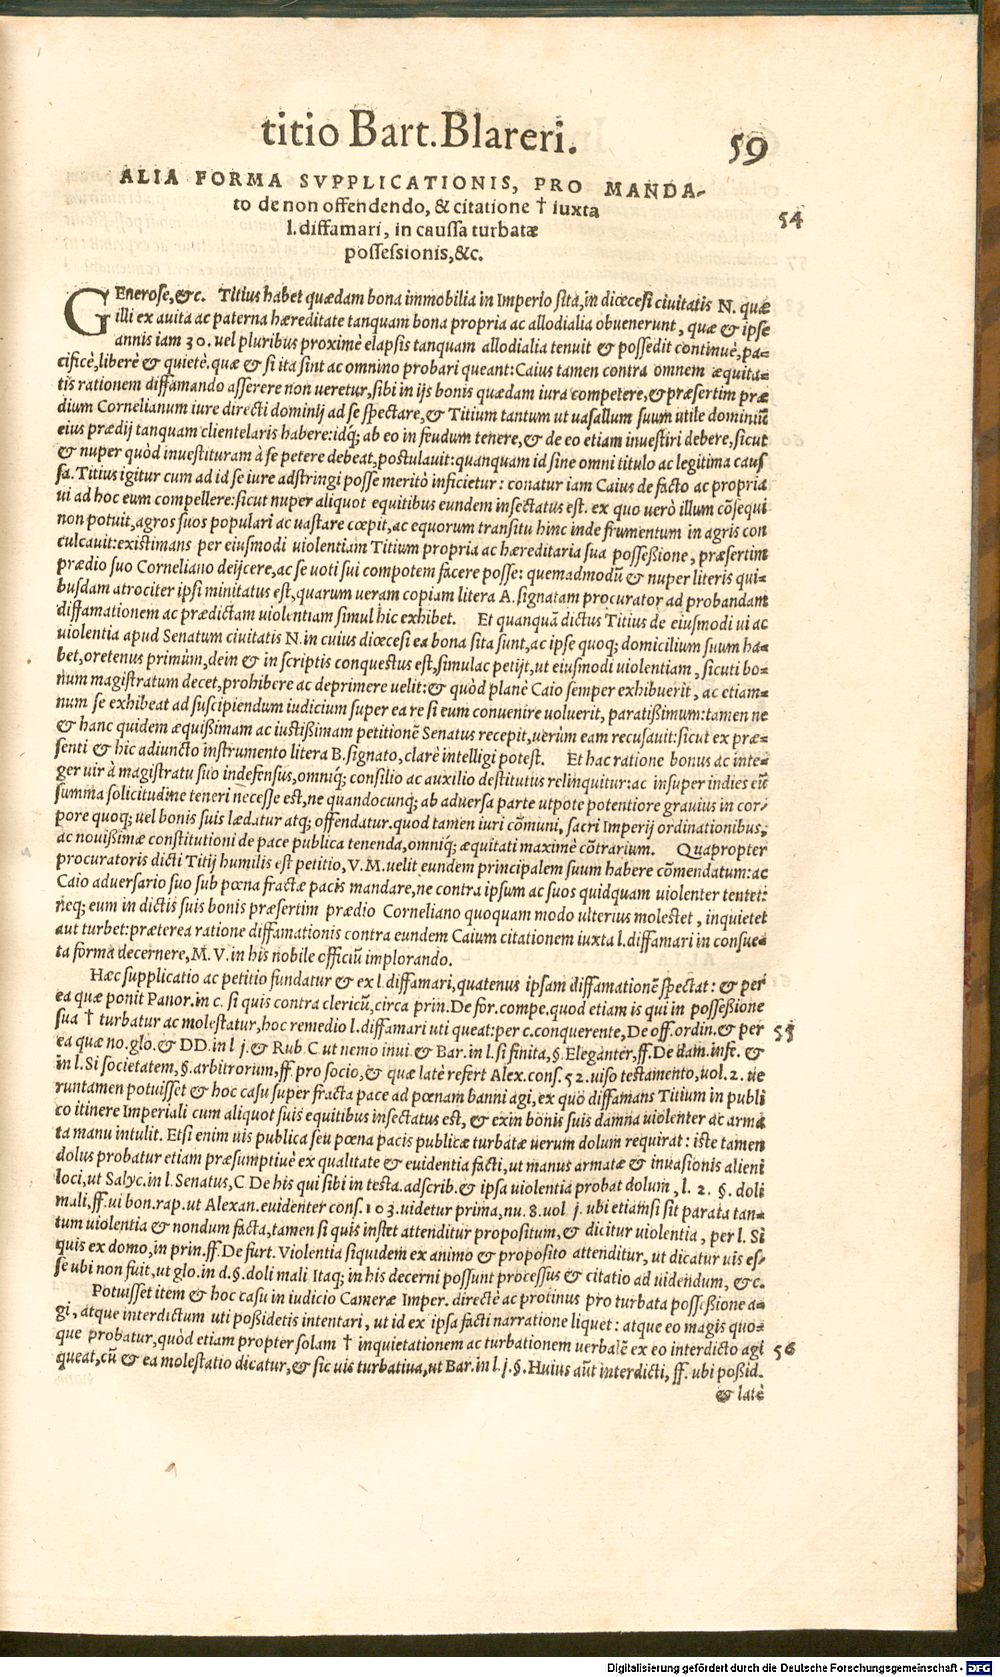 titio Bart. Blareri. 59
ALIA FORMA SVPPLICATIONIS, PRO MANDA-
to de non offendendo, & citatione † iuxta 54
l. diffamari, in caussa turbatæ
possessionis, &c.
GEnerose, &c. Titius habet quædam bona immobilia in Imperio sita, in diœcesi ciuitatis N. quæ
illi ex auita ac paterna hæreditate tanquam bona propria ac allodialia obuenerunt, quæ & ipse
annis iam 30. uel pluribus proximè elapsis tanquam allodialia tenuit & possedit continuè, pa-
cificè, liberè & quietè. quæ & si ita sint ac omnino probari queant: Caius tamen contra omnem æquita-
tis rationem diffamando asserere non ueretur, sibi in ijs bonis quædam iura competere, & præsertim præ
dium Cornelianum iure directi dominij ad se spectare, & Titium tantum ut uasallum suum utile dominiũ
eius prædij tanquam clientelaris habere: idq́; ab eo in feudum tenere, & de eo etiam inuestiri debere, sicut
& nuper quòd inuestituram à se petere debeat, postulauit: quanquam id sine omni titulo ac legitima caus
sa. Titius igitur cum ad id se iure adstringi posse meritò inficietur: conatur iam Caius de facto ac propria
ui ad hoc eum compellere: sicut nuper aliquot equitibus eundem insectatus est. ex quo uerò illum cõsequi
non potuit, agros suos populari ac uastare cœpit, ac equorum transitu hinc inde frumentum in agris con
culcauit: existimans per eiusmodi uiolentiam Titium propria ac hæreditaria sua possessione, præsertim
prædio suo Corneliano deijcere, ac se uoti sui compotem facere posse: quemadmodũ & nuper literis qui-
busdam atrociter ipsi minitatus est, quarum ueram copiam litera A. signatam procurator ad probandam
diffamationem ac prædictam uiolentiam simul hic exhibet. Et quanquã dictus Titius de eiusmodi ui ac
uiolentia apud Senatum ciuitatis N. in cuius diœcesi ea bona sita sunt, ac ipse quoq; domicilium suum ha-
bet, oretenus primùm, dein & in scriptis conquestus est, simulac petijt, ut eiusmodi uiolentiam, sicuti bo-
num magistratum decet, prohibere ac deprimere uelit: & quòd planè Caio semper exhibuerit, ac etiam-
num se exhibeat ad suscipiendum iudicium super ea re si eum conuenire uoluerit, paratissimum: tamen ne
& hanc quidem æquissimam ac iustissimam petitionẽ Senatus recepit, uerùm eam recusauit: sicut ex præ-
senti & hic adiuncto instrumento litera B. signato, clarè intelligi potest. Et hac ratione bonus ac inte-
ger uir à magistratu suo indefensus, omniq́; consilio ac auxilio destitutus relinquitur: ac insuper indies cũ
summa solicitudine teneri necesse est, ne quandocunq; ab aduersa parte utpote potentiore grauius in cor-
pore quoq; uel bonis suis lædatur atq; offendatur. quod tamen iuri cõmuni, sacri Imperij ordinationibus,
ac nouissimæ constitutioni de pace publica tenenda, omniq́; æquitati maximè cõtrarium. Quapropter
procuratoris dicti Titij humilis est petitio, V. M. uelit eundem principalem suum habere cõmendatum: ac
Caio aduersario suo sub pœna fractæ pacis mandare, ne contra ipsum ac suos quidquam uiolenter tentet:
neq; eum in dictis suis bonis præsertim prædio Corneliano quoquam modo ulterius molestet, inquietet
aut turbet: præterea ratione diffamationis contra eundem Caium citationem iuxta l. diffamari in consue-
ta forma decernere, M. V. in his nobile officiũ implorando.
Hæc supplicatio ac petitio fundatur & ex l. diffamari, quatenus ipsam diffamationẽ spectat: & per
ea quæ ponit Panor. in c. si quis contra clericũ, circa prin. De for. compe. quod etiam is qui in possessione
sua † turbatur ac molestatur, hoc remedio l. diffamari uti queat: per c. conquerente, De off. ordin. & per 55
ea quæ no. glo. & DD. in l j. & Rub C ut nemo inui. & Bar. in l. si finita, §. Eleganter, ff. De dam. infe. &
in l. Si societatem, §. arbitrorum, ff. pro socio, & quæ latè refert Alex. cons. 52. uiso testamento, uol. 2. ue
runtamen potuisset & hoc casu super fracta pace ad pœnam banni agi, ex quo diffamans Titium in publi
co itinere Imperiali cum aliquot suis equitibus insectatus est, & ex in bonis suis damna uiolenter ac arma
ta manu intulit. Etsi enim uis publica seu pœna pacis publicæ turbatæ uerum dolum requirat: iste tamen
dolus probatur etiam præsumptiuè ex qualitate & euidentia facti, ut manus armatæ & inuasionis alieni
loci, ut Salyc. in l. Senatus, C De his qui sibi in testa. adscrib. & ipsa uiolentia probat dolum, l. 2. §. doli
mali, ff. ui bon. rap. ut Alexan. euidenter cons. 103. uidetur prima, nu. 8. uol j. ubi etiamsi sit parata tan-
tum uiolentia & nondum facta, tamen si quis instet attenditur propositum, & dicitur uiolentia, per l. Si
quis ex domo, in prin. ff. De furt. Violentia siquidem ex animo & proposito attenditur, ut dicatur uis es-
se ubi non fuit, ut glo. in d. §. doli mali Itaq; in his decerni possunt processus & citatio ad uidendum, &c.
Potuisset item & hoc casu in iudicio Cameræ Imper. directè ac protinus pro turbata possessione a-
gi, atque interdictum uti possidetis intentari, ut id ex ipsa facti narratione liquet: atque eo magis quo-
que probatur, quòd etiam propter solam † inquietationem ac turbationem uerbalẽ ex eo interdicto agi 56
queat, cũ & ea molestatio dicatur, & sic uis turbatiua, ut Bar. in l. j. §. Huius aũt interdicti, ff. ubi possid.
& latè
Digitalisierung gefördert durch die Deutsche Forschungsgemeinschaft - DFG